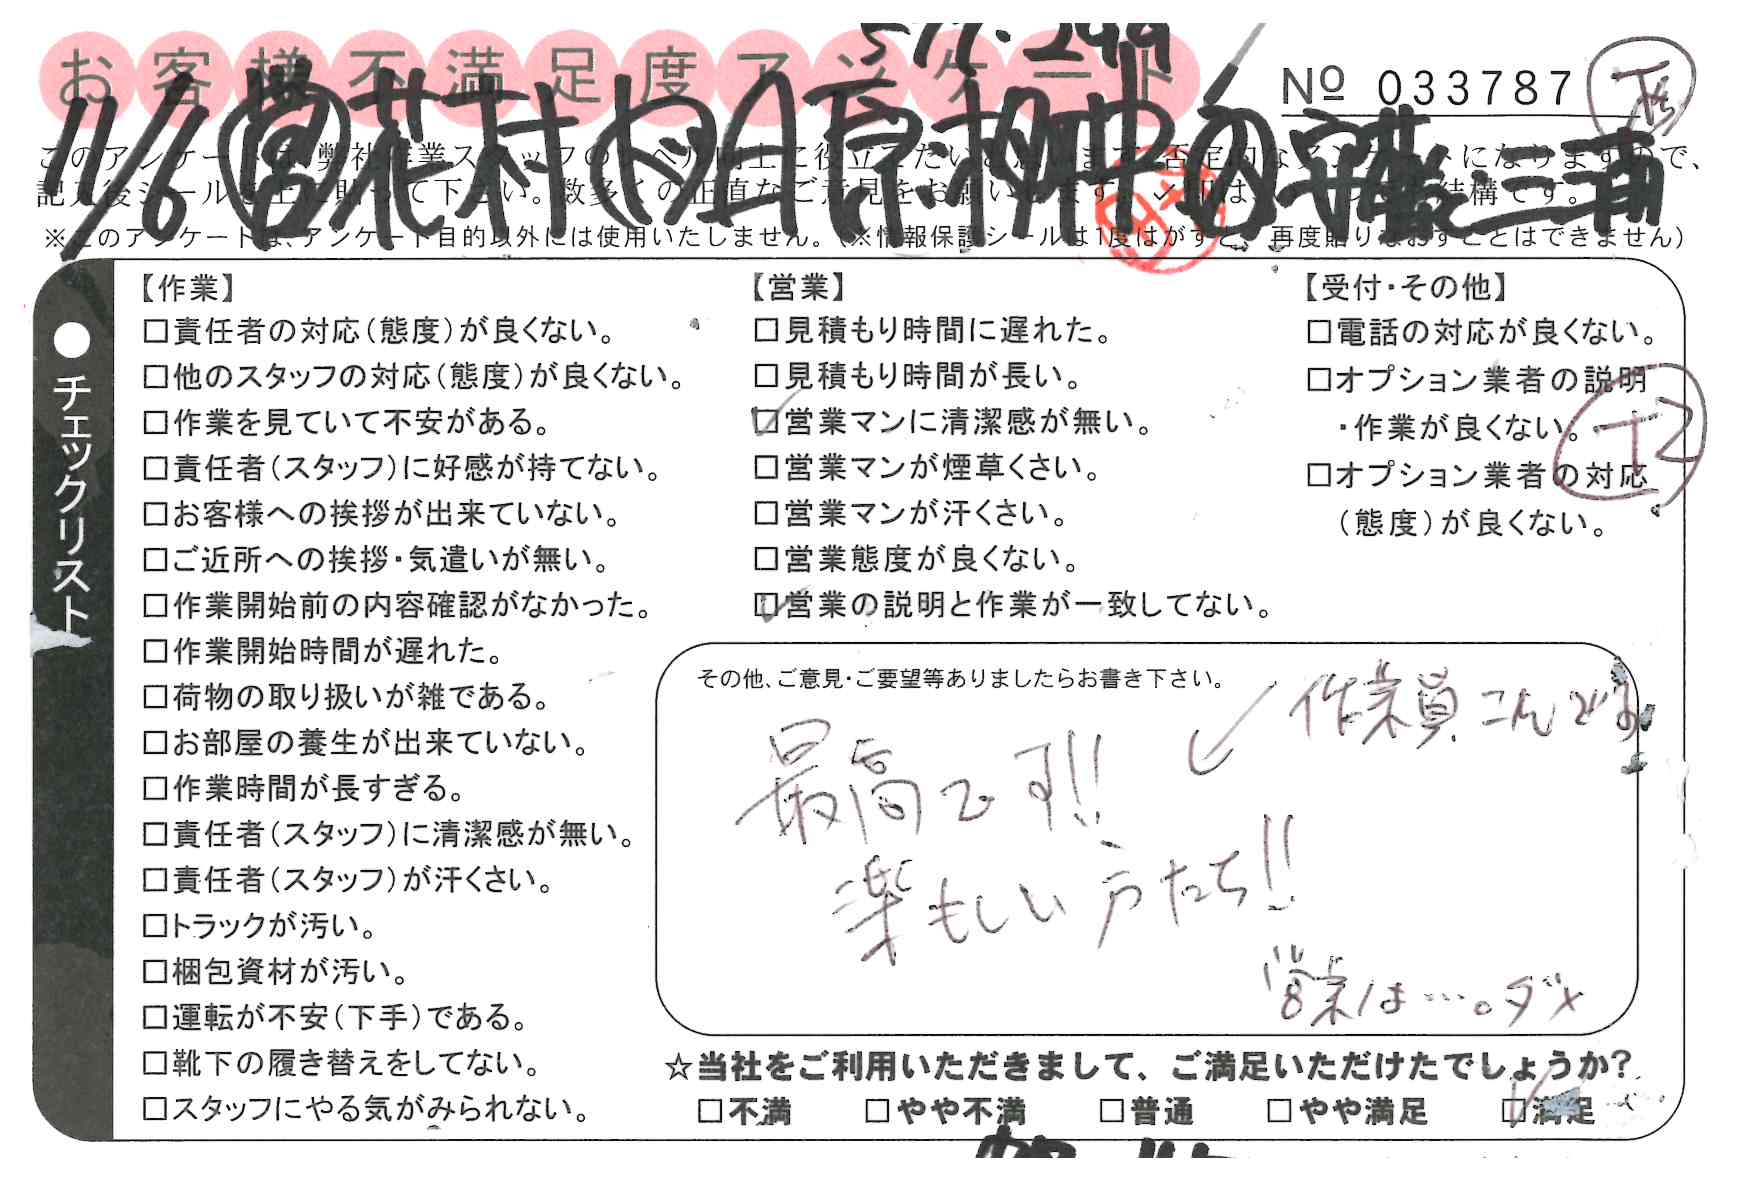 お客様不満足度アンケート
№ 033787
11/6
記入後シールを上に貼って下さい。数多くの正直なご意見をお願いします。
※このアンケートは、アンケート目的以外には使用いたしません。(※情報保護シールは1度はがすと、再度貼りなおすことはできません)
●チェックリスト
【作業】
□責任者の対応(態度)が良くない。
□他のスタッフの対応(態度)が良くない。
□作業を見ていて不安がある。
□責任者(スタッフ)に好感が持てない。
□お客様への挨拶が出来ていない。
□ご近所への挨拶・気遣いが無い。
□作業開始前の内容確認がなかった。
□作業開始時間が遅れた。
□荷物の取り扱いが雑である。
□お部屋の養生が出来ていない。
□作業時間が長すぎる。
□責任者(スタッフ)に清潔感が無い。
□責任者(スタッフ)が汗くさい。
□トラックが汚い。
□梱包資材が汚い。
□運転が不安(下手)である。
□靴下の履き替えをしてない。
□スタッフにやる気がみられない。
【営業】
□見積もり時間に遅れた。
□見積もり時間が長い。
☑営業マンに清潔感が無い。
□営業マンが煙草くさい。
□営業マンが汗くさい。
□営業態度が良くない。
☑営業の説明と作業が一致してない。
【受付・その他】
□電話の対応が良くない。
□オプション業者の説明
・作業が良くない。
□オプション業者の対応
(態度)が良くない。
+2
その他、ご意見・ご要望等ありましたらお書き下さい。
作業員さんです
最高です!!
楽もしい方たち!!
営業は…。ダメ
☆当社をご利用いただきまして、ご満足いただけたでしょうか?
□不満 □やや不満 □普通 □やや満足 ☑満足